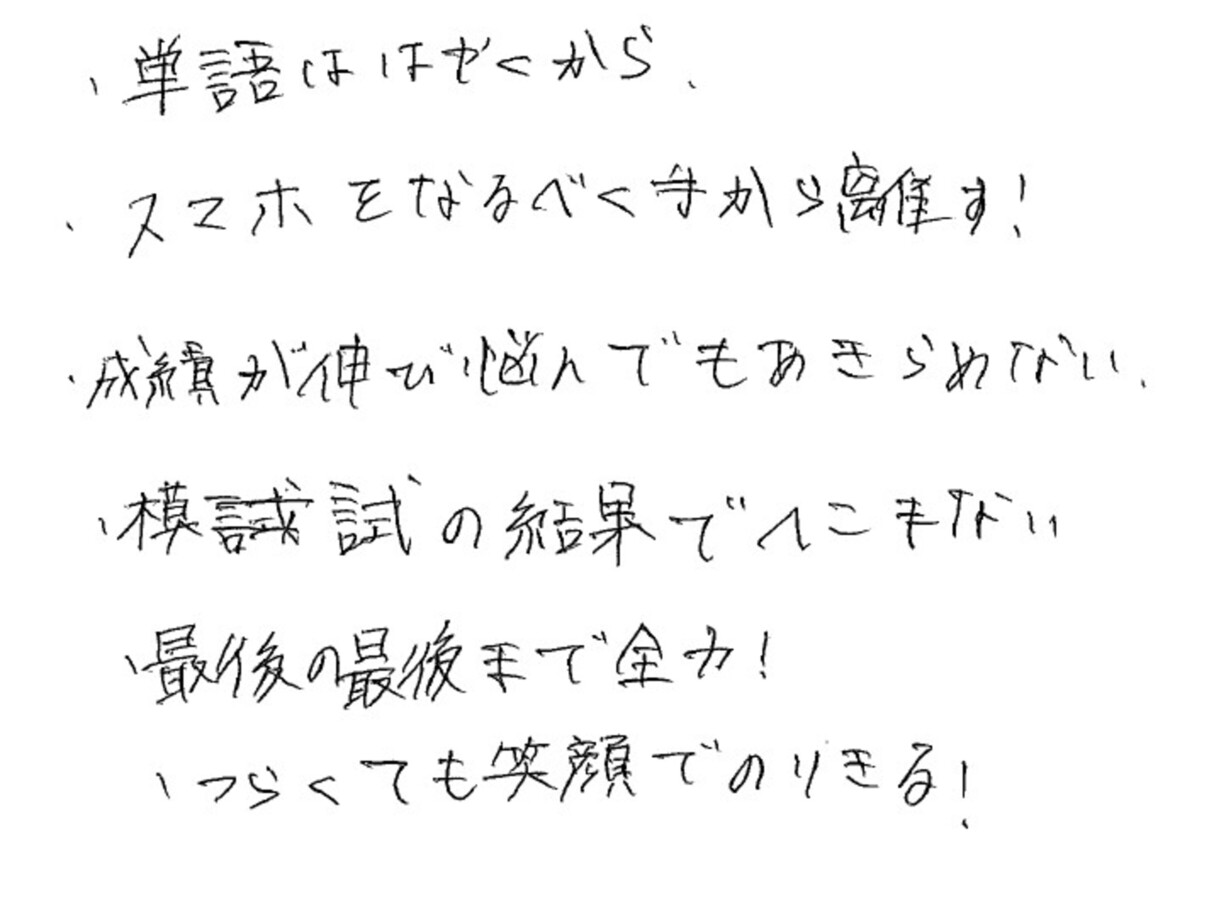 ・単語ははやくから.
・スマホをなるべく手から離す!
・成績が伸び悩んでもあきらめない.
・模試の結果でへこまない
・最後の最後まで全力!
・つらくても笑顔でのりきる!